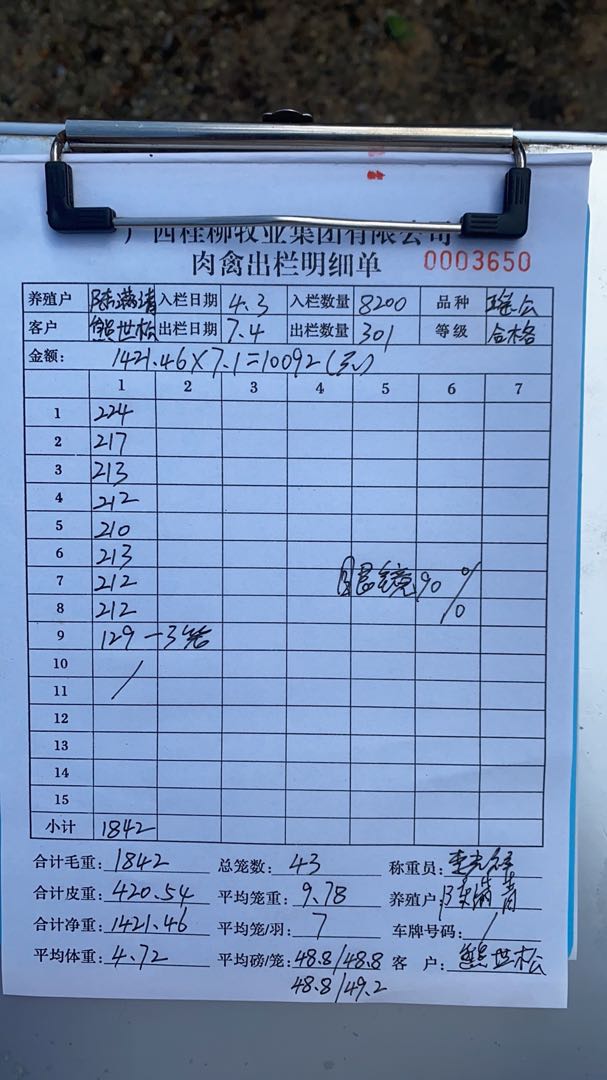 广西桂柳牧业集团有限公司
肉禽出栏明细单 0003650
养殖户 陈满清 入栏日期 4.3 入栏数量 8200 品种 瑶公
客户 熊世松 出栏日期 7.4 出栏数量 301 等级 合格
金额: 1421.46×7.1=10092(元)
1 2 3 4 5 6 7
1 224
2 217
3 213
4 212
5 210
6 213
7 212 眼镜90%
8 212
9 129-3笼
10 /
11
12
13
14
15
小计 1842
合计毛重: 1842 总笼数: 43 称重员:
合计皮重: 420.54 平均笼重: 9.78 养殖户: 陈满青
合计净重: 1421.46 平均笼/羽: 7 车牌号码: /
平均体重: 4.72 平均磅/笼: 48.8/48.8 客 户: 熊世松
48.8/49.2